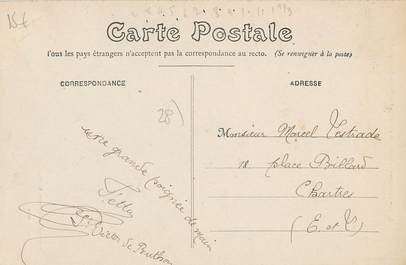 15€
Carte Postale
Tous les pays étrangers n'acceptent pas la correspondance au recto. (Se renseigner à la poste)
CORRESPONDANCE
ADRESSE
28
une grande poignée de main
Monsieur Marcel Testrade
18 place Billard
Chartres
(E et L)